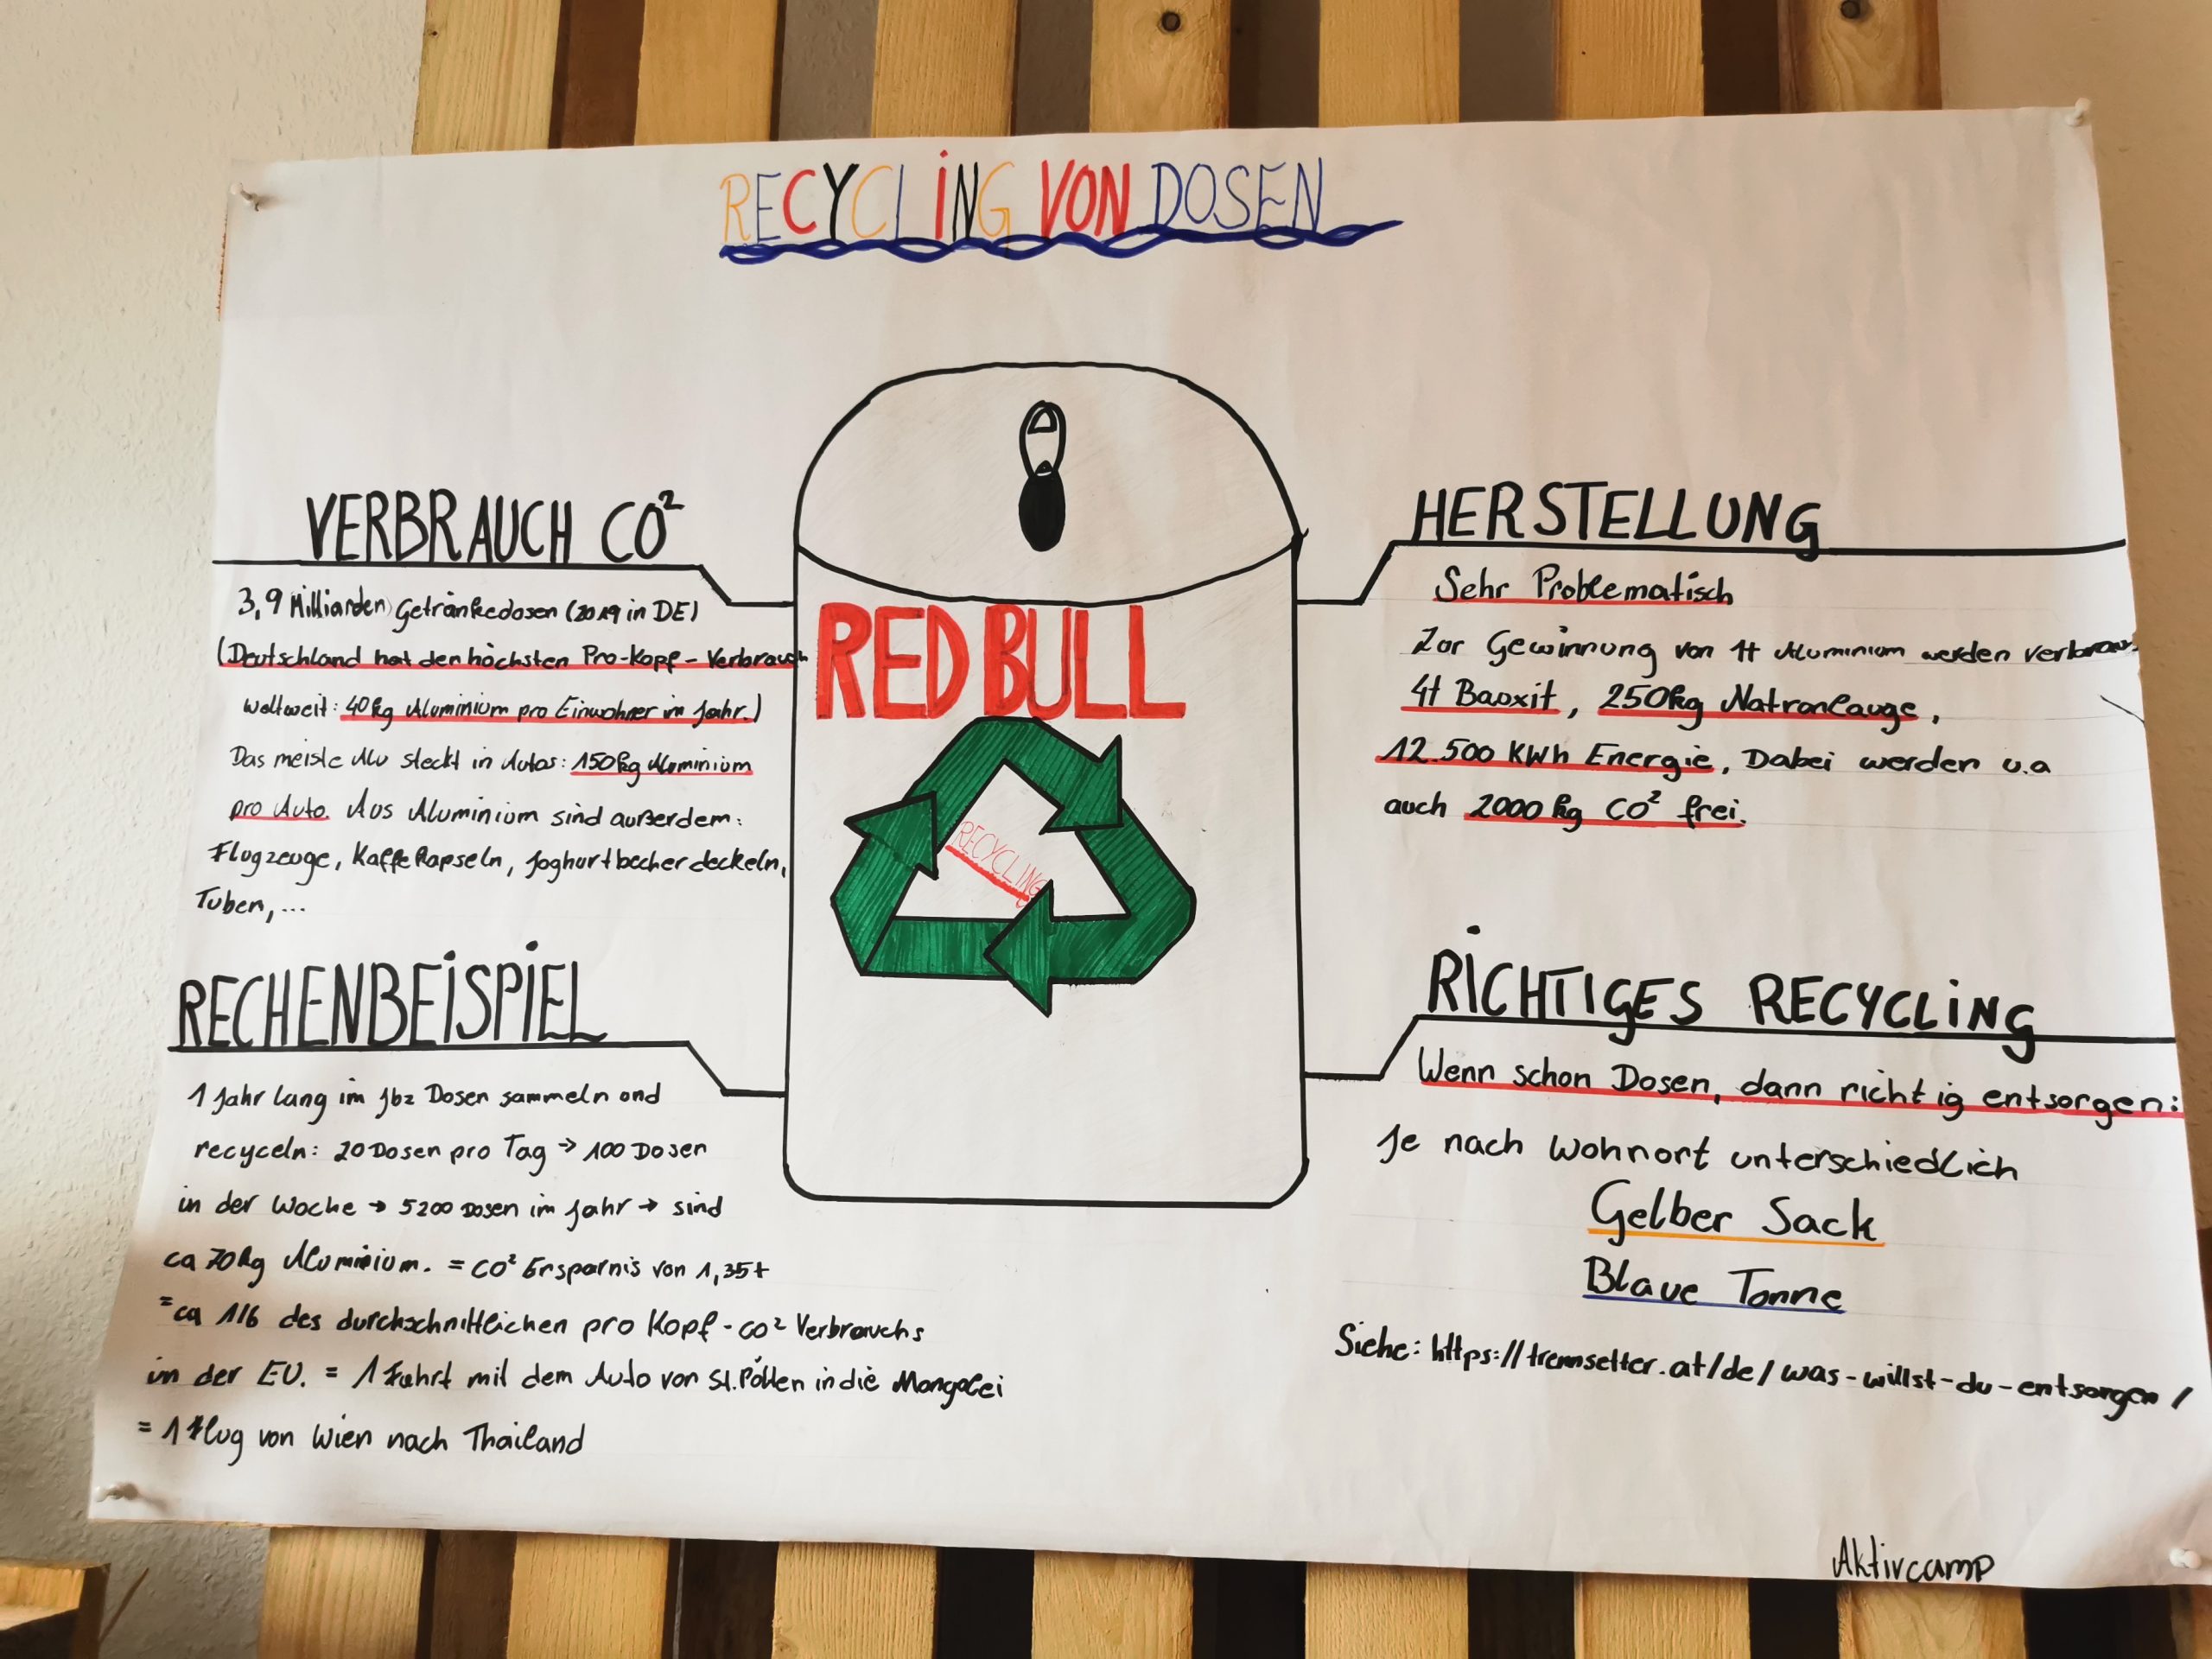 RECYCLING VON DOSEN
VERBRAUCH CO²
3,9 Milliarden Getränkedosen (2019 in DE)
(Deutschland hat den höchsten Pro-Kopf-Verbrauch
weltweit: 40kg Aluminium pro Einwohner im Jahr.)
Das meiste Alu steckt in Autos: 150kg Aluminium
pro Auto. Aus Aluminium sind außerdem:
Flugzeuge, Kaffekapseln, Joghurtbecherdeckeln,
Tuben, ...
RECHENBEISPIEL
1 Jahr lang im Jbz Dosen sammeln und
recyceln: 20 Dosen pro Tag → 100 Dosen
in der Woche → 5200 Dosen im Jahr → sind
ca 70kg Aluminium. = CO² Ersparnis von 1,35t
= ca 1/6 des durchschnittlichen pro Kopf-CO² Verbrauchs
in der EU. = 1 Fahrt mit dem Auto von St. Pölten in die Mongolei
= 1 Flug von Wien nach Thailand
RED BULL
RECYCLING
HERSTELLUNG
Sehr Problematisch
Zur Gewinnung von 1t Aluminium werden verbrauch
4t Bauxit, 250kg Natronlauge,
12.500 KWh Energie, Dabei werden u.a
auch 2000 kg CO² frei.
RICHTIGES RECYCLING
Wenn schon Dosen, dann richtig entsorgen:
Je nach Wohnort unterschiedlich
Gelber Sack
Blaue Tonne
Siehe: https://trennsetter.at/de/was-willst-du-entsorgen/
Aktivcamp